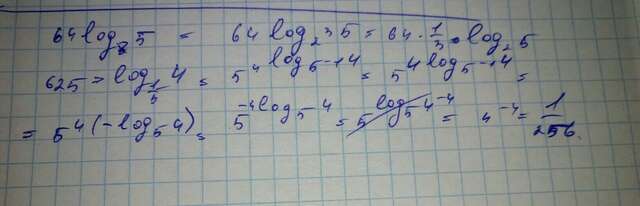 64 log₈ 5 = 64 log₂³ 5 = 64 · 1/3 · log₂ 5
625 = log_{1/5} 4 = 5⁴ log₅₋₁ 4 = 5⁴ log₅₋₁ 4 =
= 5⁴ (-log₅ 4) = 5^{-4 log₅ 4} = 5^{log₅ 4⁻⁴} = 4⁻⁴ = 1/256.